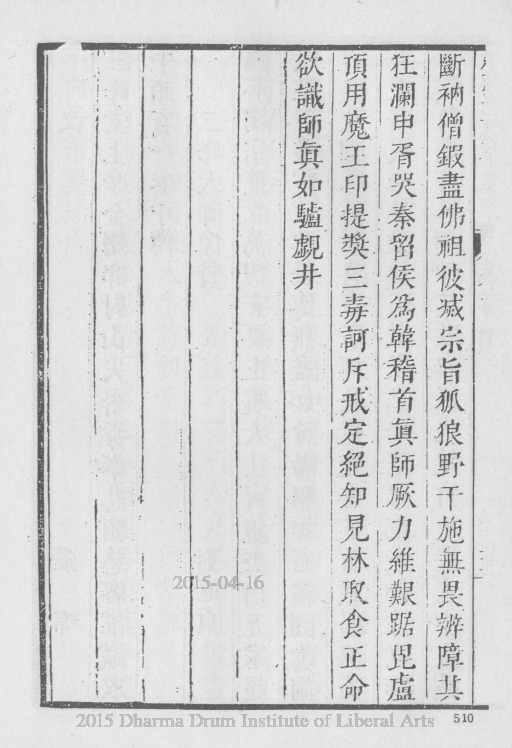 斷衲僧鍜盡佛祖彼滅宗旨狐狼野干施無畏辨障其
狂瀾申胥哭秦留侯爲韓稽首眞師厥力維艱踞毘盧
頂用魔王印提奬三毒訶斥戒定絕知見林取食正命
欲識師眞如驢覰井
2015-04-16
2015 Dharma Drum Institute of Liberal Arts
510